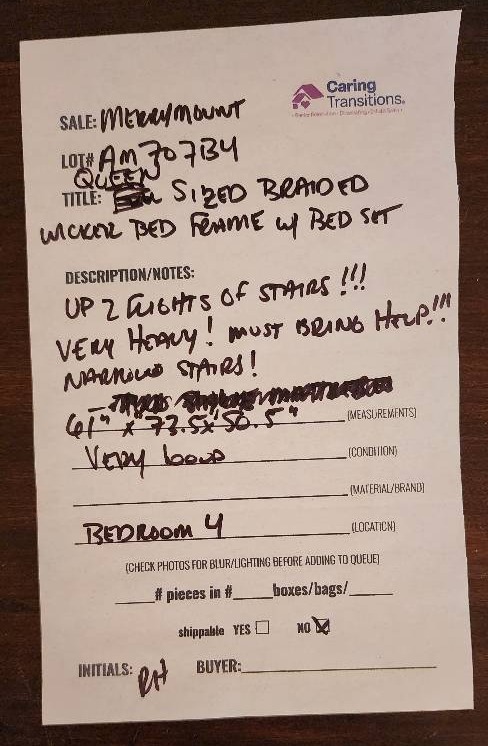 Caring
Transitions®
SALE: MERRYMOUNT
LOT# AM707B4
QUEEN
TITLE: SIZED BRAIDED
WICKER BED FRAME w/ BED SET
DESCRIPTION/NOTES:
UP 2 FLIGHTS OF STAIRS!!!
VERY HEAVY! MUST BRING HELP!!!
NARROW STAIRS!
61" x 73.5x 50.5" (MEASUREMENTS)
VERY GOOD (CONDITION)
(MATERIAL/BRAND)
BEDROOM 4 (LOCATION)
(CHECK PHOTOS FOR BLUR/LIGHTING BEFORE ADDING TO QUEUE)
# pieces in # boxes/bags/
shippable YES NO
INITIALS: RH BUYER: